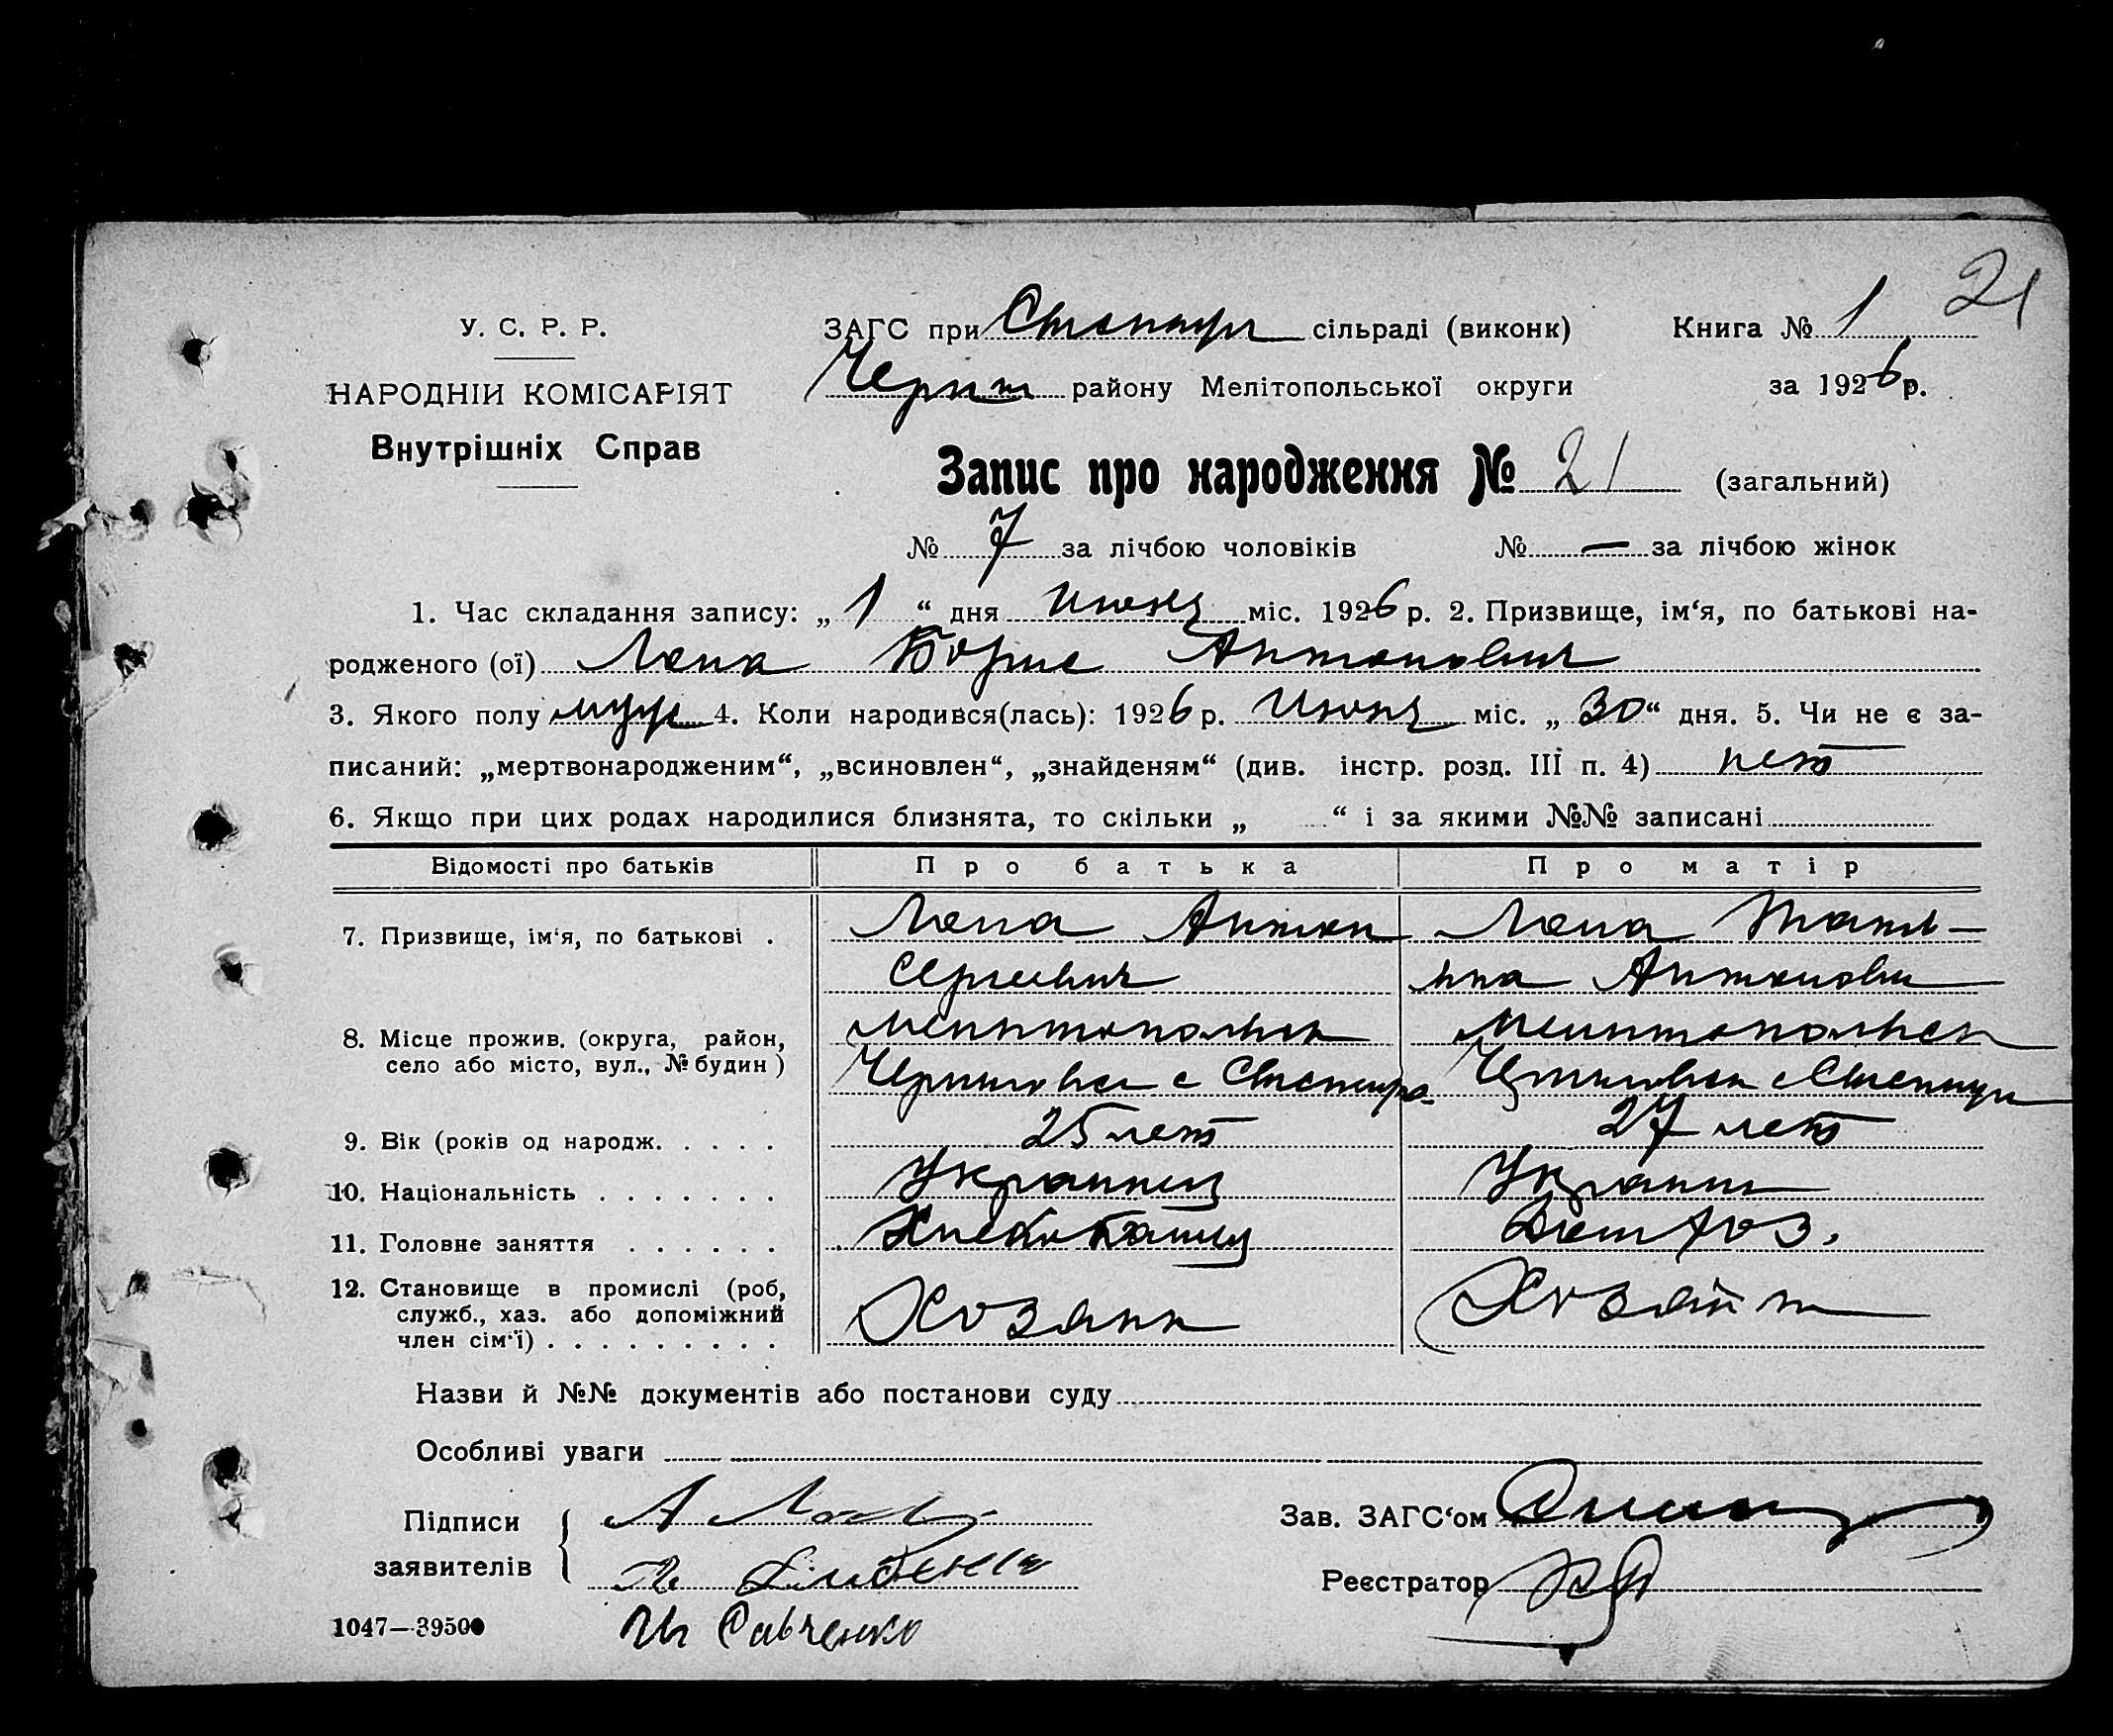 21
У. С. Р. Р.
ЗАГС при сільраді (виконк)
Книга № 1
НАРОДНІИ КОМІСАРІЯТ
Черниг району Мелітопольської округи
за 1926 р.
Внутрішніх Справ
Запис про народження № 21 (загальний)
№ 7 за лічбою чоловіків № — за лічбою жінок
1. Час складання запису: „ 1 “ дня міс. 1926 р. 2. Призвище, ім‘я, по батькові на-
родженого (ої) Лепа Борис Антонович
3. Якого полу муж 4. Коли народився(лась): 1926 р. Июня міс. „ 30 “ дня. 5. Чи не є за-
писаний: „мертвонародженим“, „всиновлен“, „знайденям“ (див. інстр. розд. III п. 4) нет
6. Якщо при цих родах народилися близнята, то скільки „ “ і за якими №№ записані
Відомості про батьків Про батька Про матір
7. Призвище, ім‘я, по батькові . Лепа Антон Лепа Татья-
Сергеевич на Антоновн
8. Місце прожив. (округа, район, Мелитопольск Мелитопольск
село або місто, вул., № будин ) Черниговск с Черниговск с
9. Вік (років од народж. . . . . 25 лет 27 лет
10. Національність . . . . . . . Украинец Украин
11. Головне заняття . . . . . . Хлебопашец Дом хоз.
12. Становище в промислі (роб, Хозяин
служб., хаз. або допоміжний
член сім‘ї) . . . . . . . . .
Назви й №№ документів або постанови суду
Особливі уваги
Підписи А
Зав. ЗАГС‘ом
заявителів
Реєстратор
1047—39500 Савченко